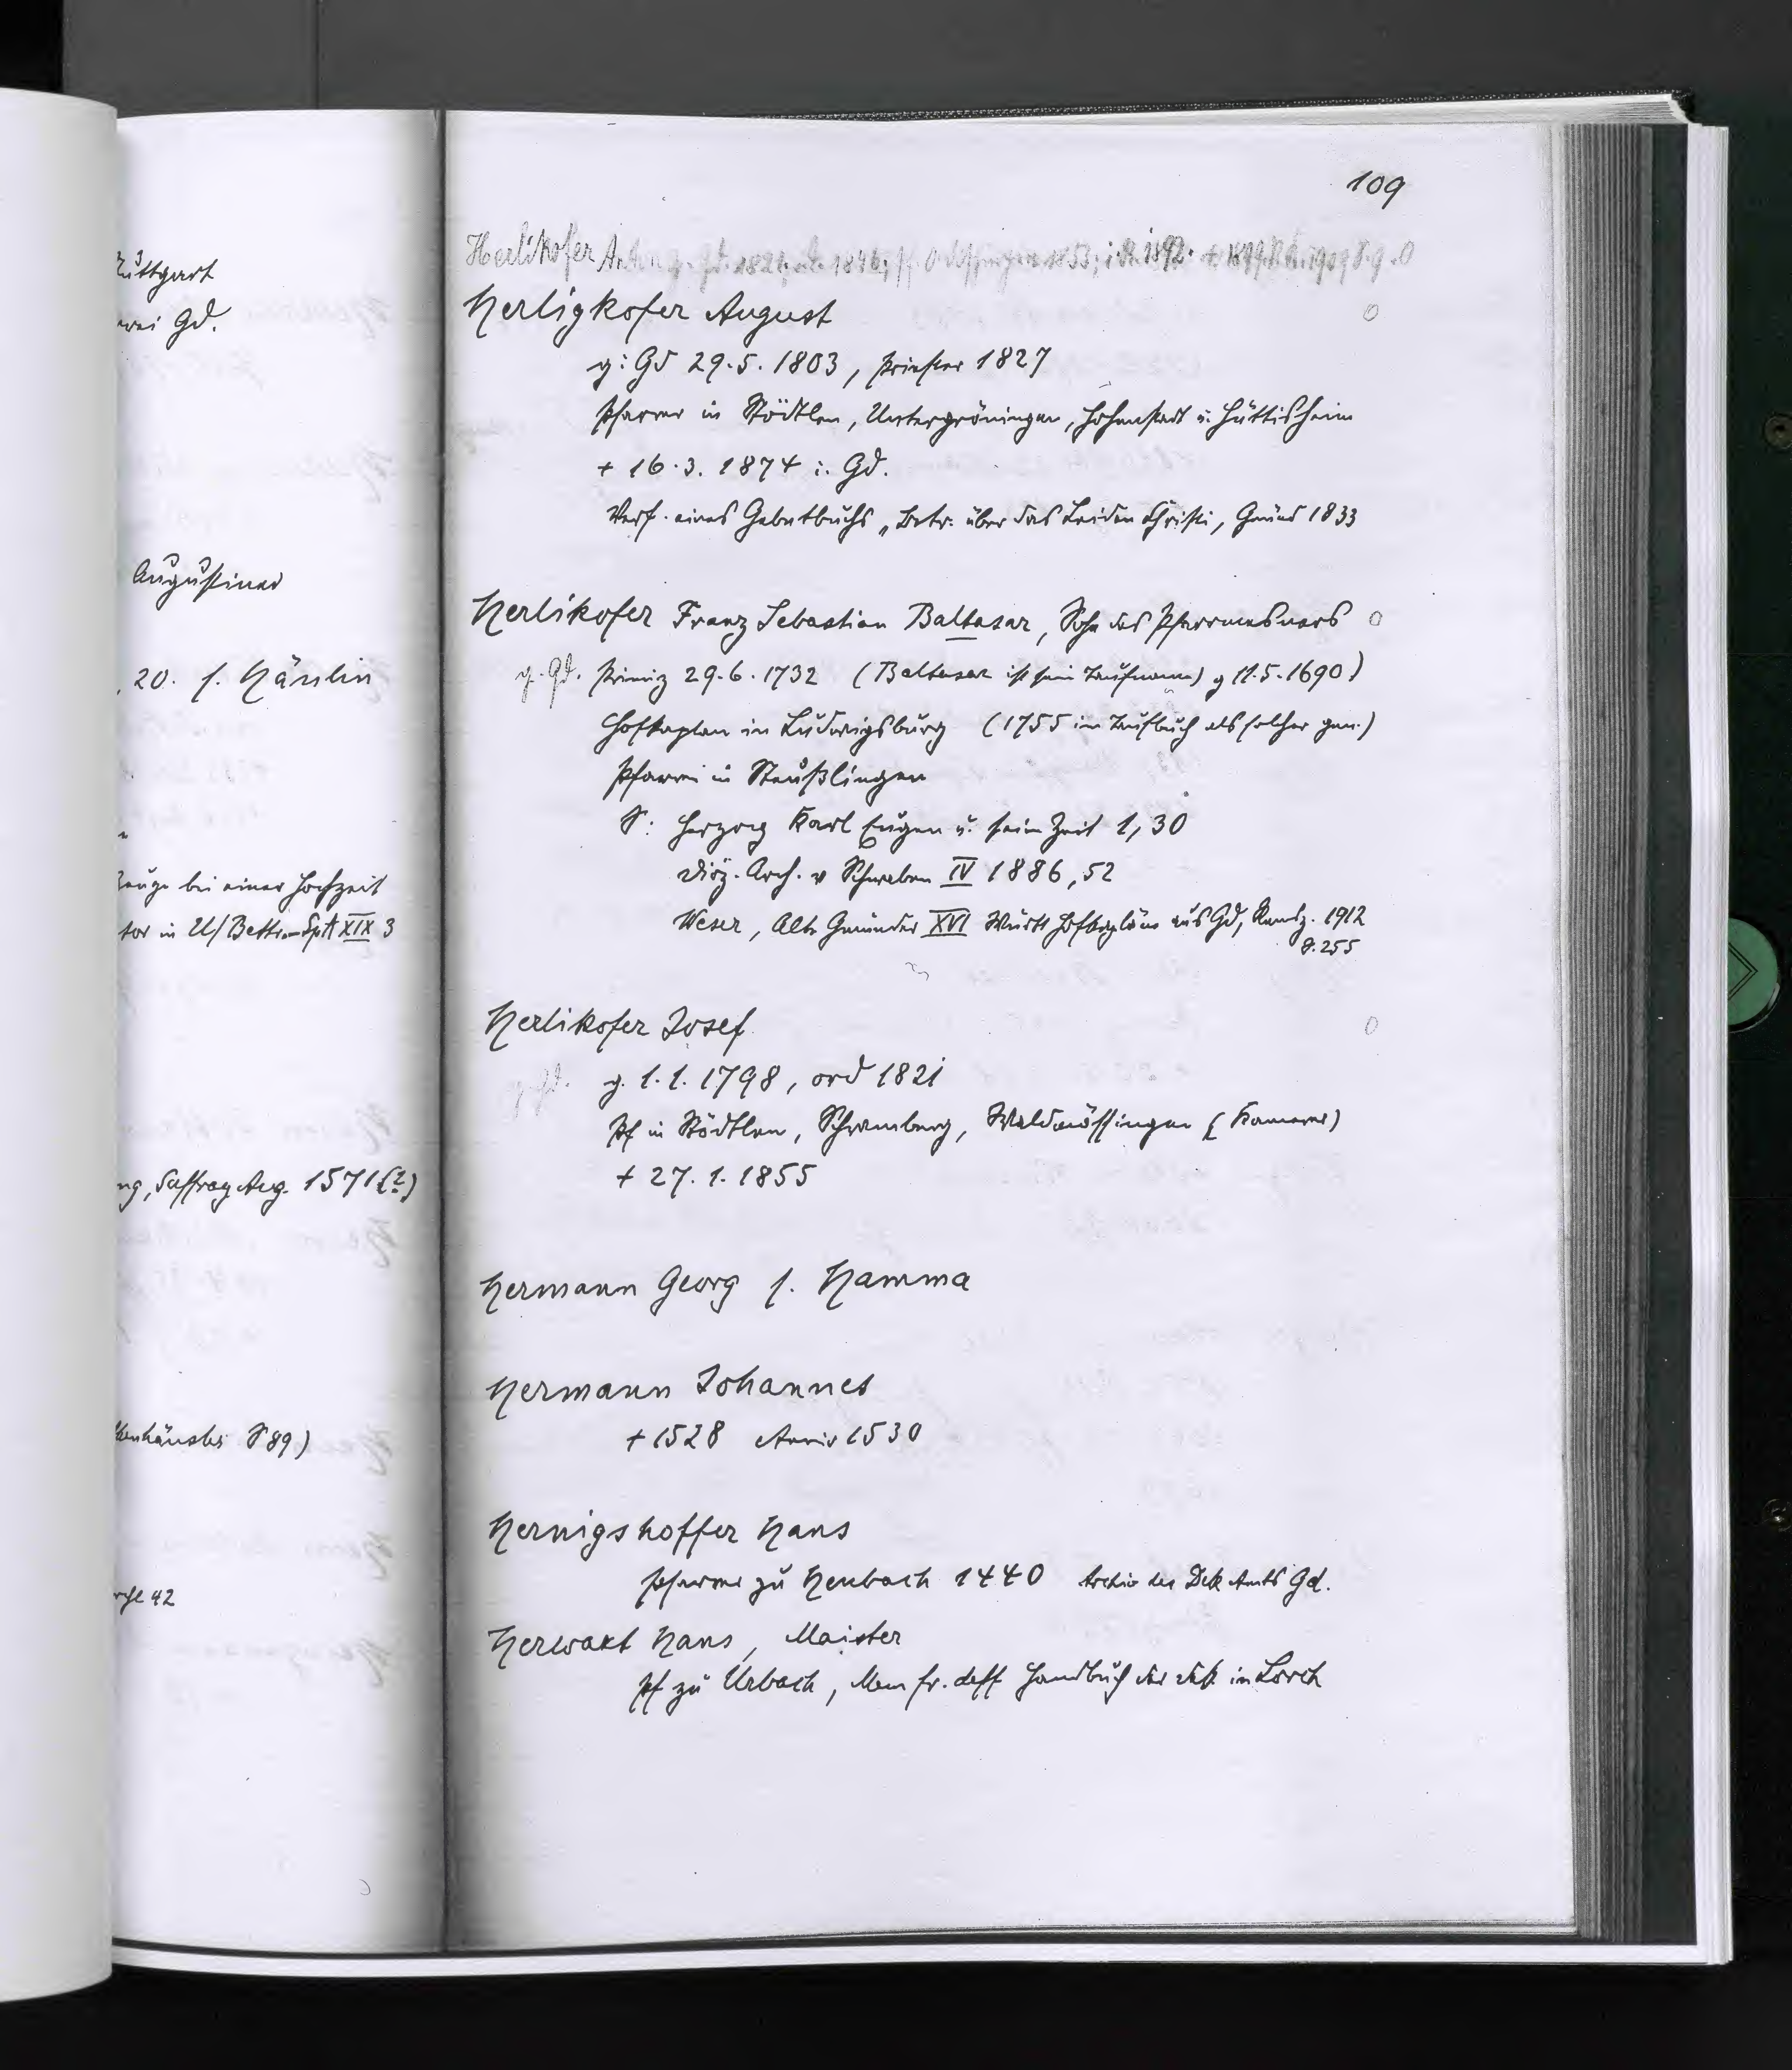 109
Herlikofer Anton g. Gd. 1821, ord. 1846; Pf. 1853; 1892. + 1899.
Herligkofer August
g: Gd 29.5.1803, Priester 1827
Pfarrer in Stödtlen, Untergröningen, Hohenstadt u. Hüttisheim
+ 16.3.1874 i. Gd.
Verf. eines Gebetbuchs „Betr. über das Leiden Christi, Gmünd 1833
Herlikofer Franz Sebastian Baltasar, Sohn des Pfarrmesners
g. Gd. Primiz 29.6.1732 (Baltasar ist sein Taufname) g 11.5.1690)
Hofkaplan in Ludwigsburg (1755 im Taufbuch als solcher gen.)
Pfarrei in Steußlingen
S: Herzog Karl Eugen u. seine Zeit 1,30
Diöz. Arch. v Schwaben IV 1886, 52
Weser, Alte Gmünder XVI Württ Hofkapläne aus Gd, Remsz. 1912
S. 255
Herlikofer Josef
g. Gd. g. 1.1.1798, ord 1821
Pf in Stödtlen, Schramberg, Waldmössingen (Kamerer)
+ 27.1.1855
Hermann Georg s. Hamma
Hermann Johannes
+ 1528 Anniv 1530
Hernigshoffer Hans
Pfarrer zu Heubach 1440 Archiv des Dek Amts Gd.
Herwart Hans, Maister
Pf zu Urbach, Mem fr. deff Handbuch des Dek. in Lorch
Stuttgart
Gd.
Augustiner
20. s. Hänlin
Zeuge bei einer Hochzeit
tor in U/Bettr.-SpA XIX 3
ng, Suffrag Aug. 1571 (?)
S 89)
42